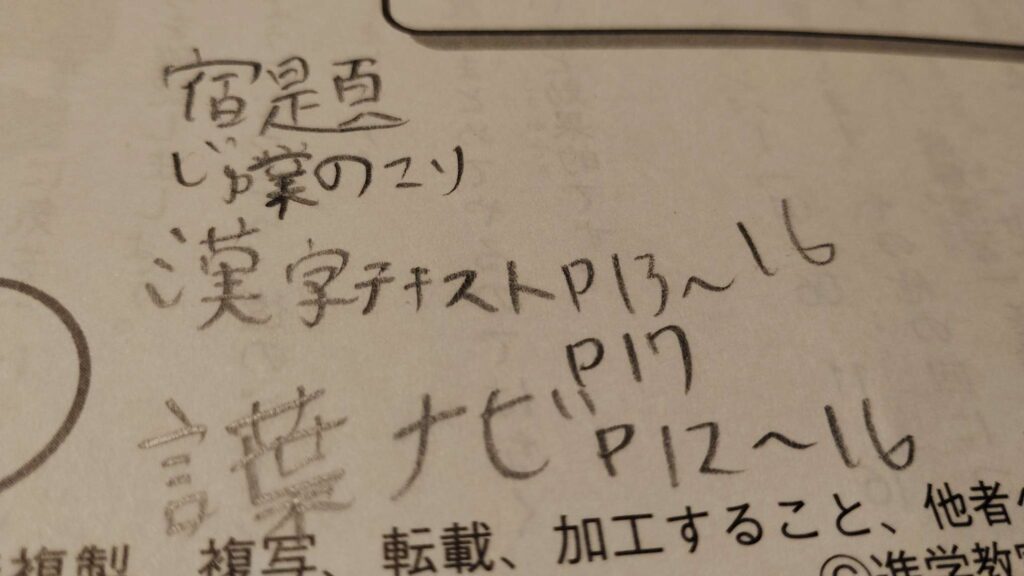 宿題
じゅ業のこり
漢字テキストP13~16
P17
言葉ナビP12~16
複製、複写、転載、加工すること、他者へ
©進学教室